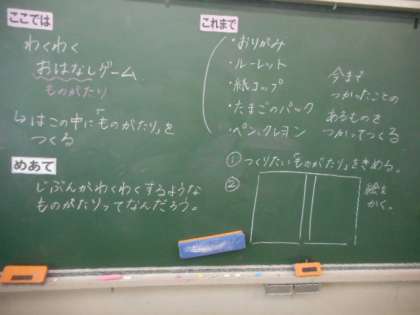 ここでは
わくわく
おはなしゲーム
ものがたり
↳はこの中に「ものがたり」を
つくる
めあて
じぶんがわくわくするような
ものがたりってなんだろう。
これまで
・おりがみ
・ルーレット
・紙コップ
・たまごのパック
・ペン、クレヨン
今まで
つかったことの
あるものを
つかってつくる
①つくりたい「ものがたり」をきめる。
②
絵を
かく。